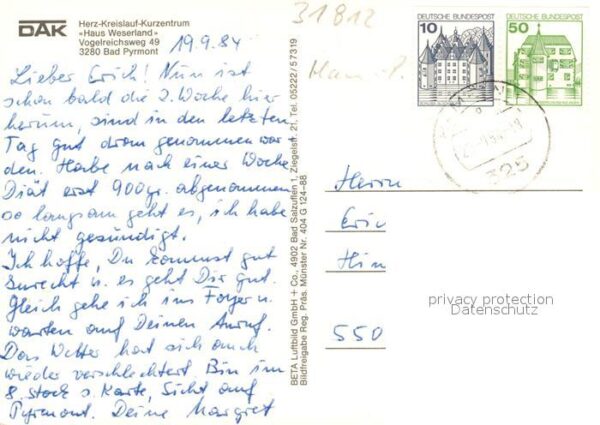 DAK
Herz-Kreislauf-Kurzentrum
»Haus Weserland«
Vogelreichsweg 49
3280 Bad Pyrmont
19.9.84
Lieber Erich! Nun ist
schon bald die 2. Woche hier
herum, sind in den letzten
Tag gut dran genommen wor
den. Habe nach einer Woche
Diät erst 900gr. abgenommen
so langsam geht es, ich habe
nicht gesündigt.
Ich hoffe, Du kommst gut
zurecht u. es geht Dir gut.
Gleich gehe ich ins Foyer u.
warten auf Deinen Anruf.
Das Wetter hat sich auch
wieder verschlechtert. Bin im
8. Stock s. Karte, Sicht auf
Pyrmont. Deine Margret
BETA Luftbild GmbH + Co., 4902 Bad Salzuflen 1, Ziegelstr. 21, Tel. 05222/57319
Bildfreigabe Reg. Präs. Münster Nr. 404 G 124-88
31812
DEUTSCHE BUNDESPOST
10
DEUTSCHE BUNDESPOST
50
325
Herrn
Eric
Hin
550
privacy protection
Datenschutz